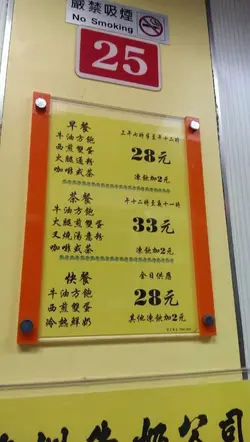 嚴禁吸煙
No Smoking
25
早餐
牛油方飽
西煎雙蛋
火腿通粉
咖啡或茶
上午七時半至十二時
28元
凍飲加2元
茶餐
牛油方飽
火腿煎雙蛋
叉燒湯意粉
咖啡或茶
十一時
33元
凍飲加2元
快餐
牛油方飽
西煎雙蛋
冷熱鮮奶
全日供應
28元
其他凍飲加2元
牛奶公司